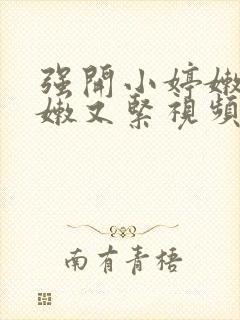 强開小婷嫩
嫩又緊視頻
南有青梧